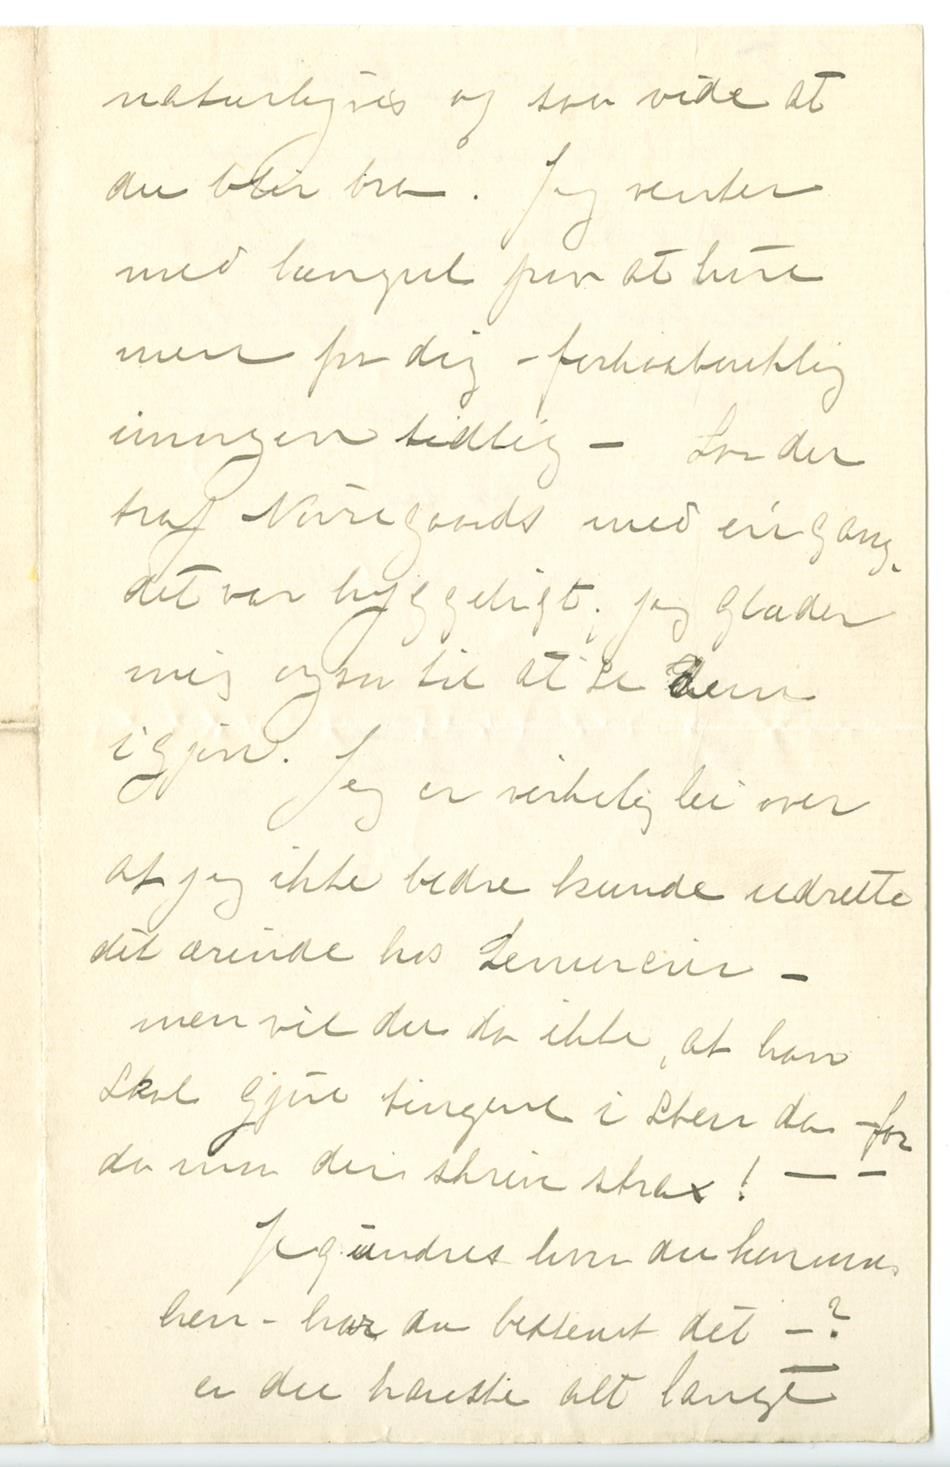 naturligvis og saa vide at
du blir bra. Jeg venter
med længsel paa at høre
mere fra dig – forhaabentlig
imorgen tidlig – Saa du
traf Nørregaards med én gang,
det var hyggeligt. jeg glæder
mig ogsaa til at se dem
igjen. Jeg er virkelig lei over
at jeg ikke bedre kunde udrette
dit ærinde hos Lemercier –
men vil du da ikke, at han
skal gjøre tingene i Sten da – for
da maa du skrive strax! – –
Jeg undres hvor du kommer
hen – har du bestemt det – ?
er du kanske alt langt